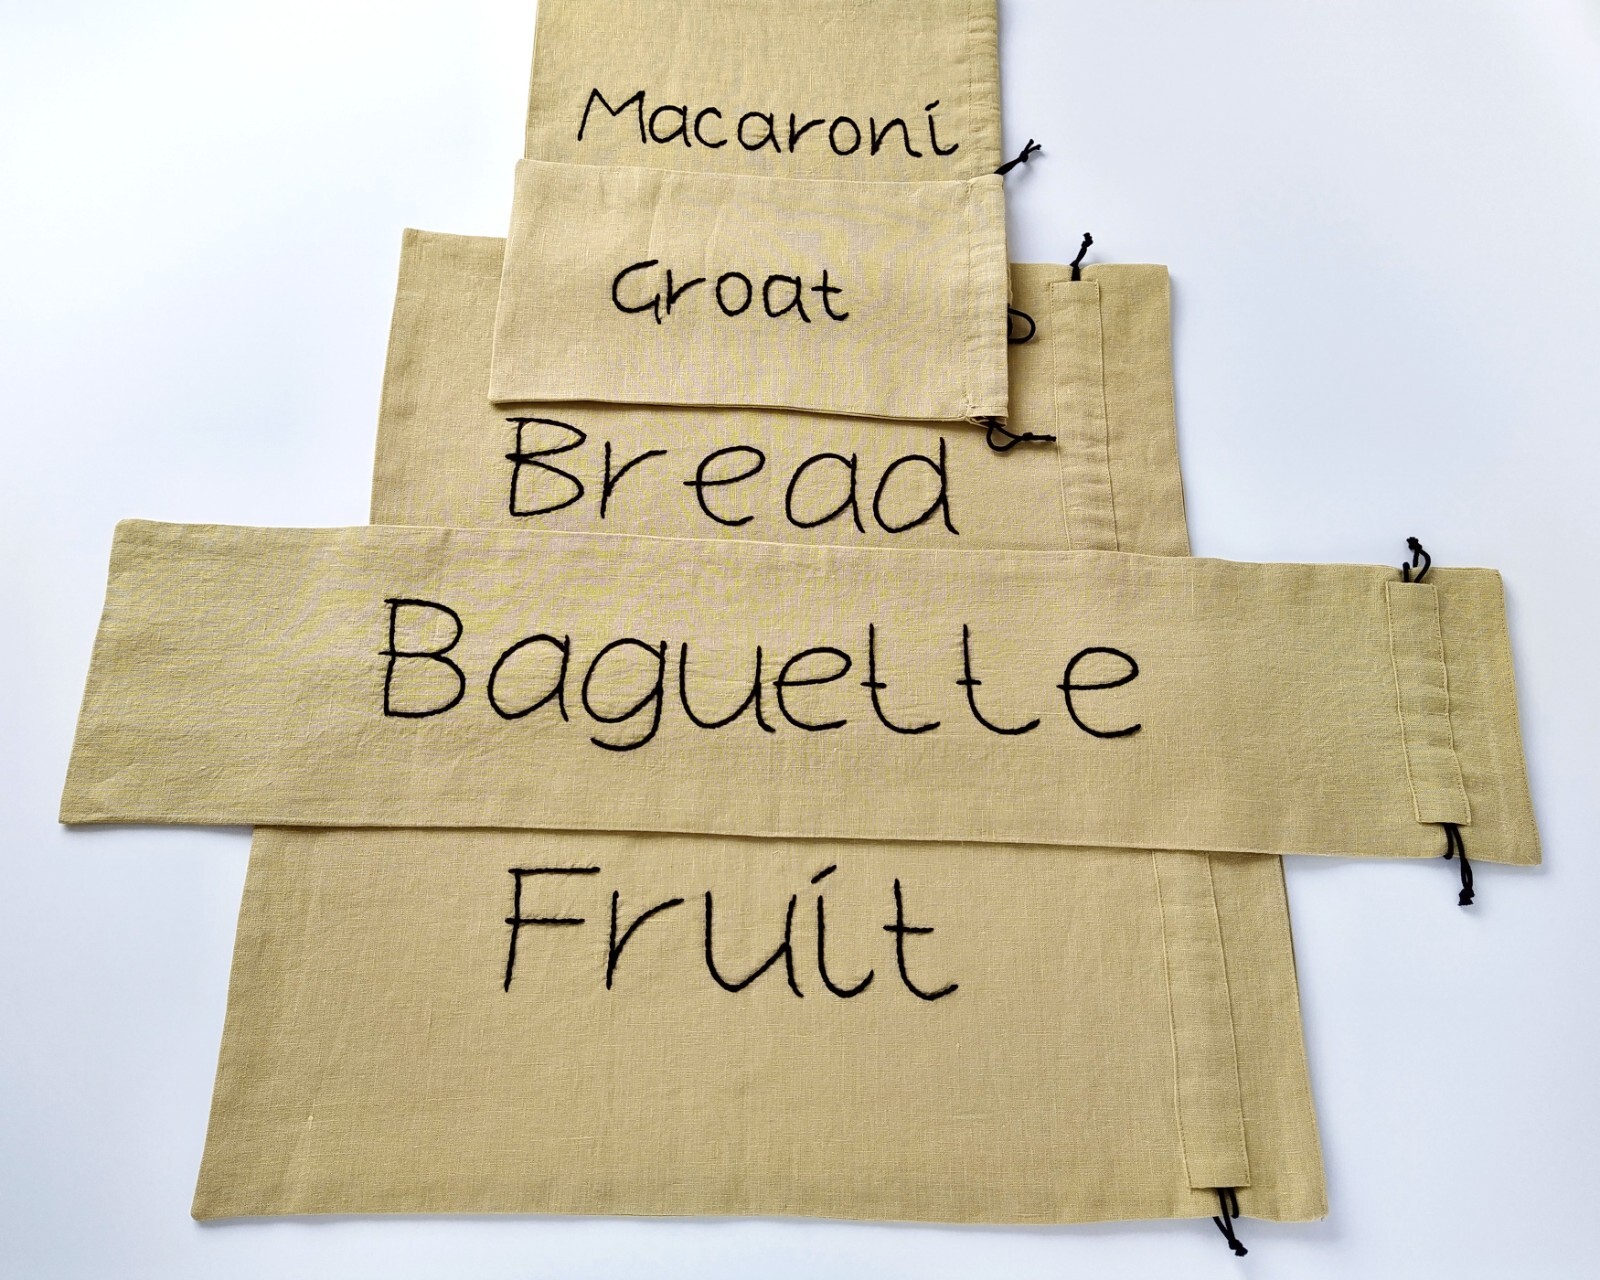 Macaroni
Groat
Bread
Baguette
Fruit